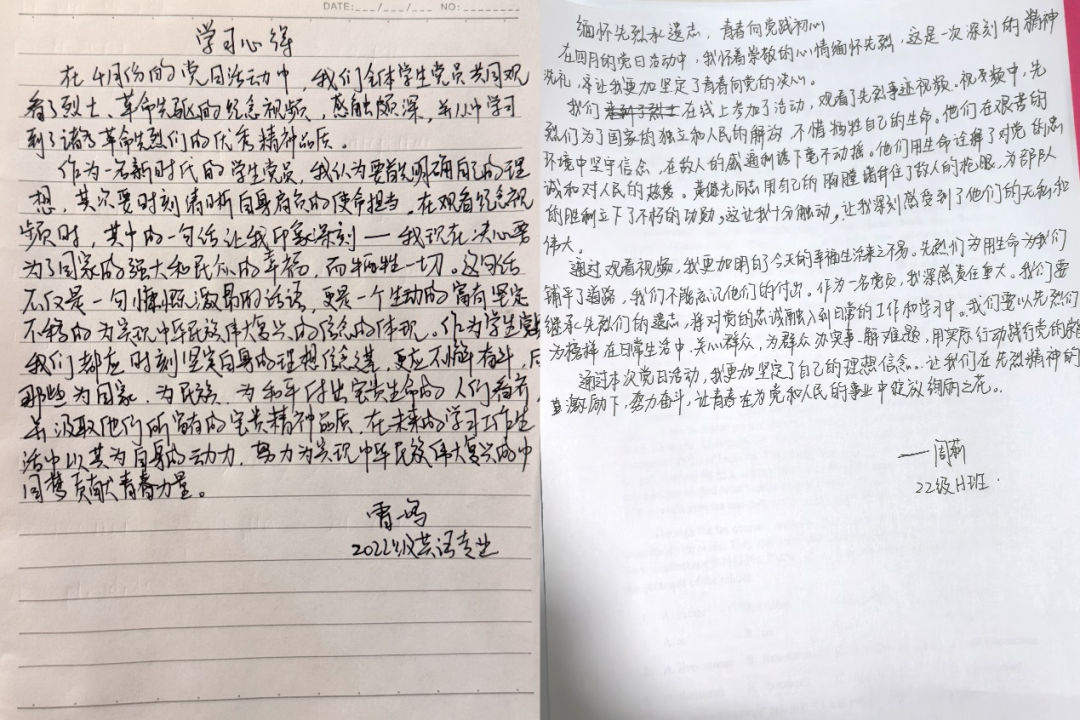 DATE: ___/___/___ NO:
学习心得
在4月份的党日活动中，我们全体学生党员共同观
看了烈士、革命先驱的纪念视频，感触颇深，并从中学习
到了诸多革命先烈们的优秀精神品质。
作为一名新时代的学生党员，我认为要首先明确自己的理
想，其次要时刻清晰自身肩负的使命担当。在观看纪念视
频时，其中的一句话让我印象深刻——我现在决心要
为了国家的强大和民众的幸福，而牺牲一切。这句话
不仅是一句慷慨激昂的话语，更是一个生动的富有坚定
不移的为实现中华民族伟大复兴的信念的体现。作为学生党员
我们都应时刻坚定自身的理想信念，更应不懈奋斗，向
那些为国家、为民族、为和平付出宝贵生命的人们看齐，
并汲取他们所富有的宝贵精神品质，在未来的学习工作生
活中以其为自身的动力，努力为实现中华民族伟大复兴的中
国梦贡献青春力量。
雷鸣
2022级英语专业
缅怀先烈承遗志，青春向党践初心
在四月的党日活动中，我怀着崇敬的心情缅怀先烈，这是一次深刻的精神
洗礼，亦让我更加坚定了青春向党的决心。
我们在线上参加了活动，观看了先烈事迹视频。视频中，先
烈们为了国家的独立和人民的解放，不惜牺牲自己的生命。他们在艰苦的
环境中坚守信念，在敌人的威逼利诱下毫不动摇。他们用生命诠释了对党的忠
诚和对人民的热爱。黄继光同志用自己的胸膛堵住了敌人的枪眼，为部队
的胜利立下了不朽的功勋，这让我十分触动，让我深刻感受到了他们的无私和
伟大。
通过观看视频，我更加明白了今天的幸福生活来之不易。先烈们为用生命为我们
铺平了道路，我们不能忘记他们的付出。作为一名党员，我深感责任重大。我们要
继承先烈们的遗志，将对党的忠诚融入到日常的工作和学习中。我们要以先烈们
为榜样，在日常生活中，关心群众，为群众办实事、解难题，用实际行动践行党的
通过本次党日活动，我更加坚定了自己的理想信念。让我们在先烈精神的
激励下，努力奋斗，让青春在为党和人民的事业中绽放绚丽之花。
——周莉
22级H班.